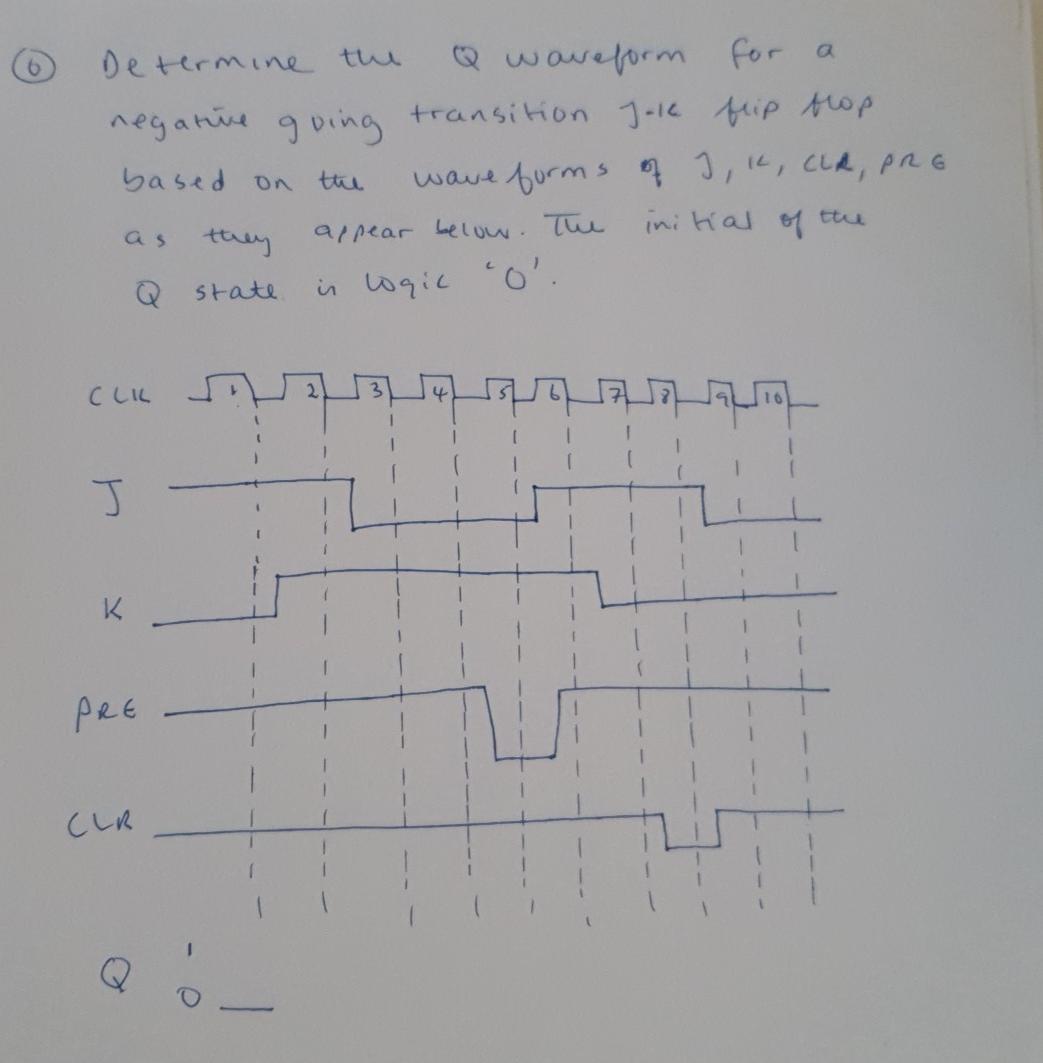 6 Determine the Q waveform for a
negative going transition J-K flip flop
based on the waveforms of J, K, CLR, PRE
as they appear below. The initial of the
Q state is logic '0'.
CLK 1 2 3 4 5 6 7 8 9 10
J
K
PRE
CLR
1
Q
0